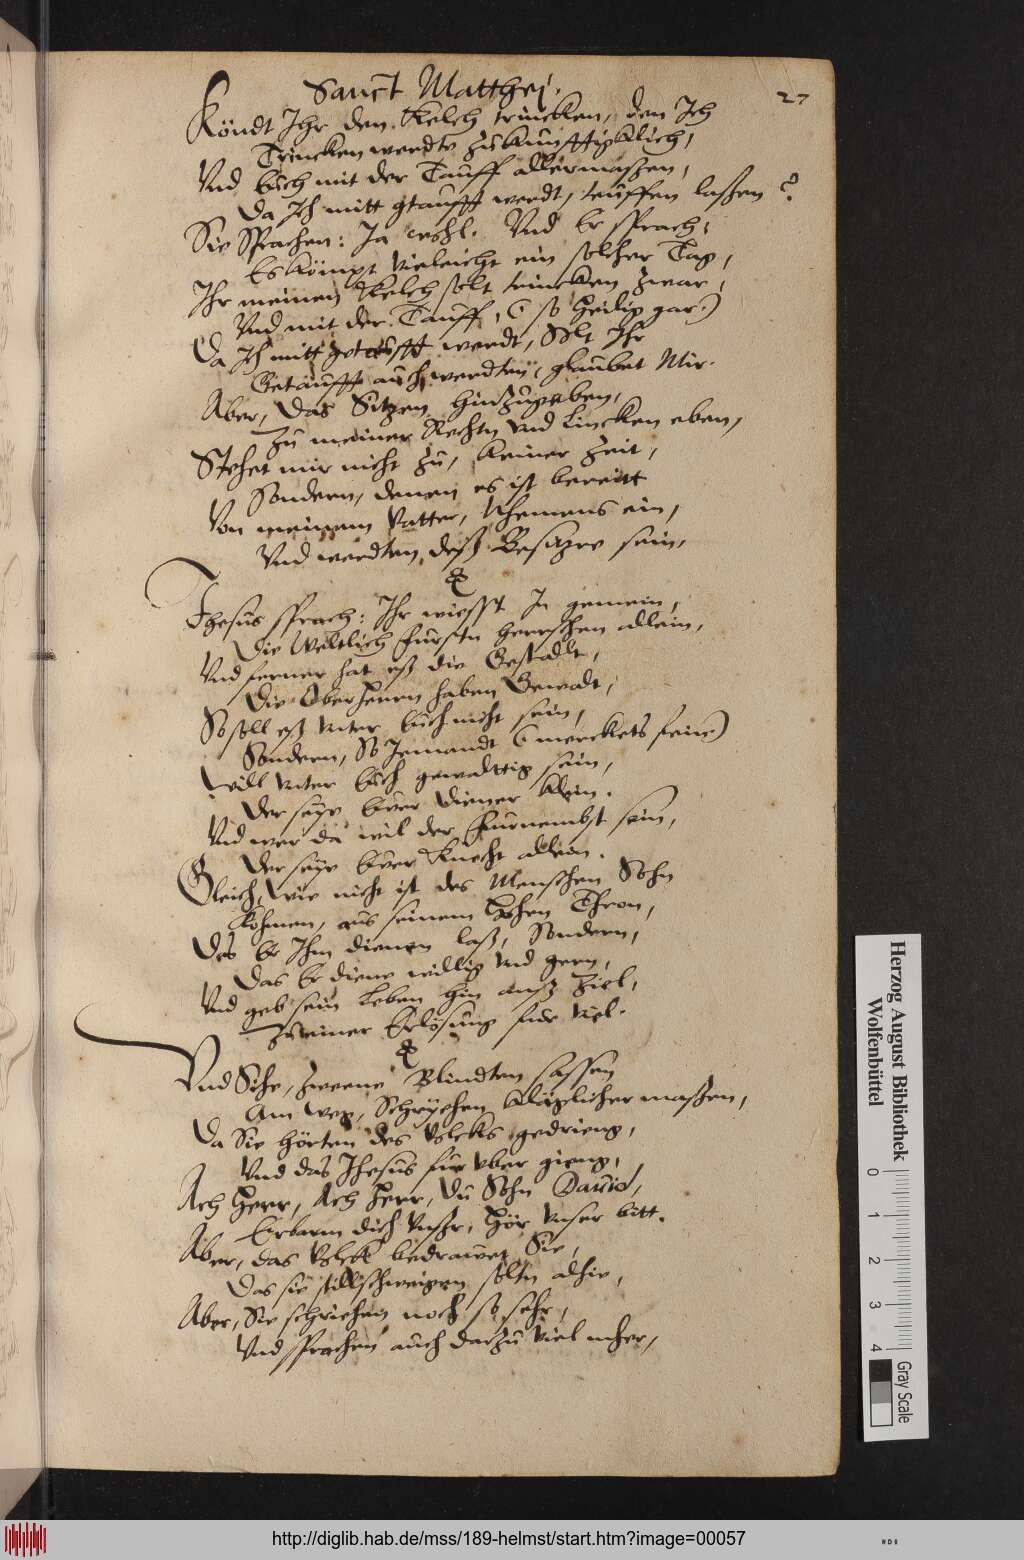 Sanct Matthej.
27
Köndt Ihr den Kelch trincken, den Ich
Trincken werdte zukunfftigklich,
Vnd Euch mit der Tauff allermaßen,
Da Ich mitt gtaufft werdt, teuffen laßen?
Sie Sprachen: Ja wohl. Vnd Er sprach:
Es kömpt vieleicht ein solcher Tag,
Ihr meinen Kelch solt trincken zwar,
Vnd mit der Tauff, (so heilig gar)
Da Ich mitt getaufft werdt, Solt Ihr
Getaufft auch werdten, glaubet Mir.
Aber, das Sitzen hinzugeben,
Zu meiner Rechtn vnd Lincken eben,
Stehet mir nicht zu, keiner Zeit,
Sondern, denen es ist bereitt
Von meinem Vatter, Nhemens ein,
Vnd werdten deß Besizer sein.
Jhesus sprach: Ihr wiesst In gemein,
Die Weltlich Furstn herrschen allein,
Vnd ferner hat eß die Gestaldt,
Die Oberherrn haben Gewalt,
So soll eß vnter Euch nicht sein,
Sondern, So Jemandt (merckets fein)
Will vnter Euch gewaltig sein,
Der seye Euer Diener klein.
Vnd wer da wil der Furnembst sein,
Der seye Euer Knecht allein.
Gleich, Wie nicht ist des Menschen Sohn
Kohmen, aus seinem hohen Thron,
Das Er Ihm dienen laß, Sondern,
Das Er diene willig vnd gern,
Vnd geb sein Leben hin aufs Ziel,
Zu einer Erlösung fur viel.
Vnd Sihe, zweene Blindten sassen
Am Weg, Schryehen kläglicher maßen,
Da Sie hörten des Volcks gedrieng,
Vnd das Jhesus fur vber gieng,
Ach Herr, Ach Herr, Du Sohn Dauid,
Erbarm dich Vnser, Hör vnser bitt.
Aber, das Volck bedrawet Sie,
Das sie stillschweigen soltn alhie,
Aber, Sie schriehen noch so sehr,
Vnd sprachen auch darzu viel mher,
Herzog August Bibliothek
Wolfenbüttel
0 1 2 3 4
Gray Scale
http://diglib.hab.de/mss/189-helmst/start.htm?image=00057